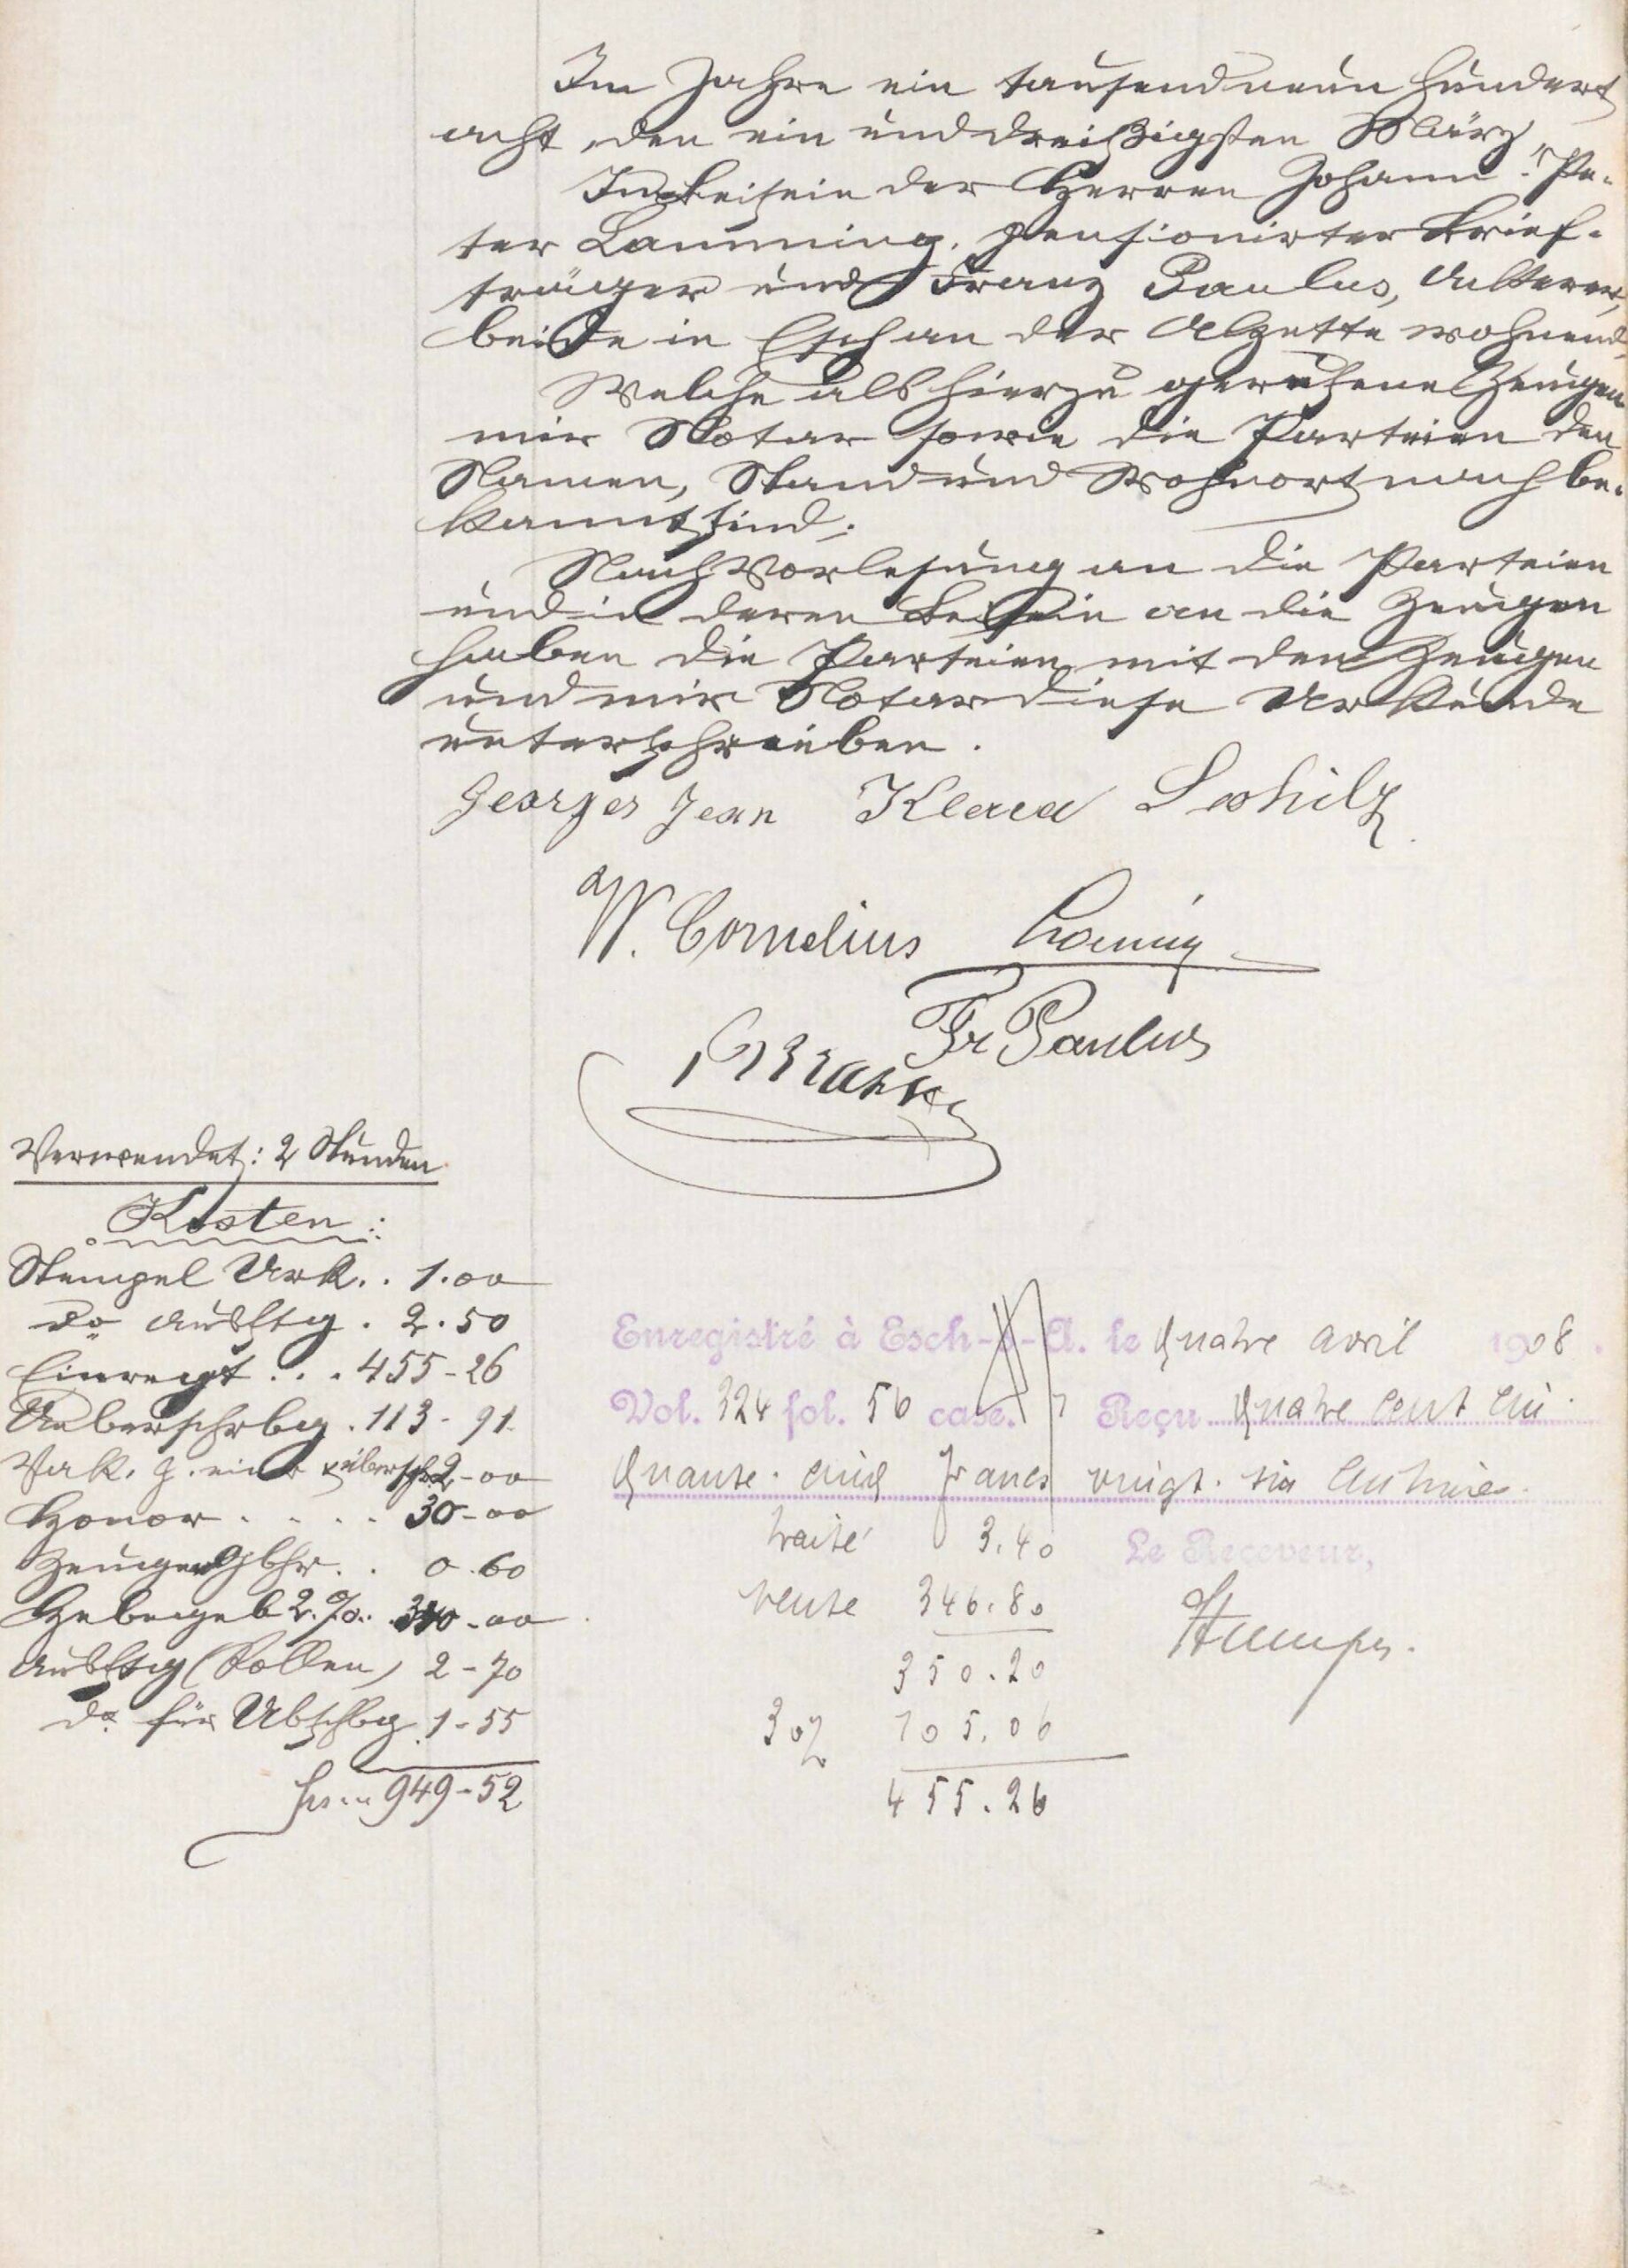 Im Jahre ein tausend neun hundert
acht, den ein und dreißigsten März,
Im Beisein der Herren Johann-Pe-
ter Lamming, pensionirter Brief-
träger und Franz Paulus, Ackerer,
beide in Esch an der Alzette wohnend,
Welche als hierzu gerufene Zeugen
mir Notar sowie die Parteien den
Namen, Stand und Wohnort nach be-
kannt sind;
Nach Vorlesung an die Parteien
und in deren Beisein an die Zeugen
haben die Parteien mit den Zeugen
und mir Notar diese Urkunde
unterschrieben.
Georges Jean Klara Schilz
W. Cornelius
Fr Paulus
Verwendet: 2 Stunden
Kosten:
Stempel Urk.. 1.00
do Ausftg. 2.50
Einregt... 455-26
Ueberschrbg. 113-91
2-00
Honor.... 30-00
Zeugen Gbhr.. 0.60
Hebegeb 2.%.. 340-00
Ausftg (Rollen) 2-70
do für Ubschbg 1-55
949-52
Enregistré à Esch-s-A. le quatre avril 1908.
Vol. 324 fol. 56 case. 7 Reçu quatre cent cin-
quante-cinq francs vingt-six centimes.
traité 3.40 Le Receveur,
vente 346.80
350.20
30% 105.06
455.26